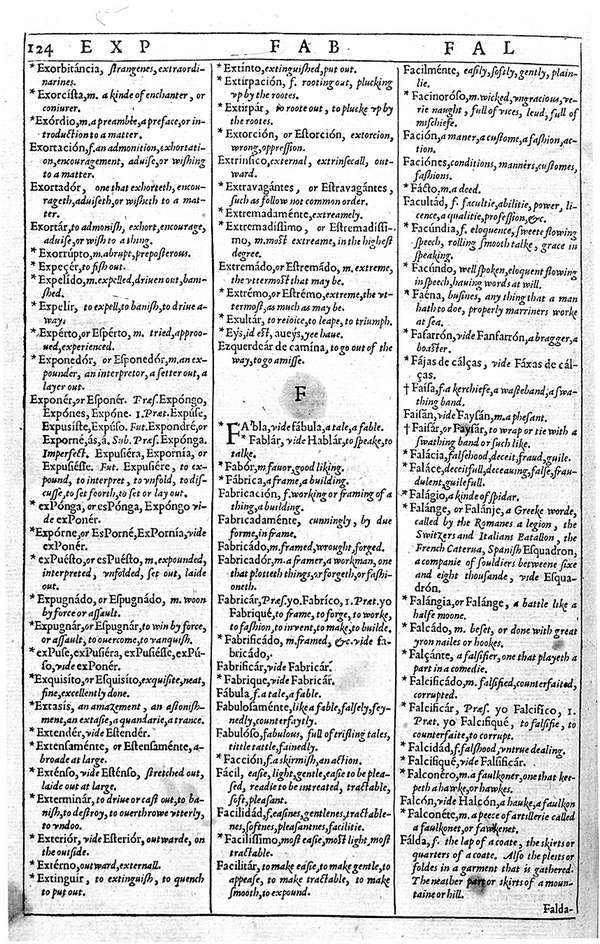 124 E X P F A B F A L
* Exorbitáncia, strangenes, extraordi-
narines.
* Exorcísta, m. a kinde of enchanter, or
coniurer.
* Exórdio, m. a preamble, a preface, or in-
troduction to a matter.
Exortación, f. an admonition, exhortati-
on, encouragement, aduise, or wishing
to a matter.
Exortadór, one that exhorteth, encou-
rageth, aduiseth, or wisheth to a mat-
ter.
Exortár, to admonish, exhort, encourage,
aduise, or wish to a thing.
* Exorrúpto, m. abrupt, preposterous.
* Expeçér, to fish out.
* Expelído, m. expelled, driuen out, bani-
shed.
* Expelír, to expell, to banish, to driue a-
way.
* Expérto, or Espérto, m. tried, approo-
ued, experienced.
* Exponedór, or Esponedór, m. an ex-
pounder, an interpretor, a setter out, a
layer out.
Exponér, or Esponér. Præs. Expóngo,
Expónes, Expóne. 1. Præt. Expúse,
Expusíste, Expúso. Fut. Expondré, or
Exporné, ás, á. Sub. Præs. Expónga.
Imperfect. Expusiéra, Expornía, or
Expusiésse. Fut. Expusiére, to ex-
pound, to interpret, to vnfold, to dis-
cusse, to set foorth, to set or lay out.
* exPónga, or esPónga, Expóngo vi-
de exPonér.
* Expórne, or EsPorné, ExPornía, vide
exPonér.
* exPuésto, or esPuésto, m. expounded,
interpreted, vnfolded, set out, laide
out.
* Expugnádo, or Espugnádo, m. woon
by force or assault.
* Expugnár, or Espugnár, to win by force,
or assault, to ouercome, to vanquish.
* exPuse, exPusiéra, exPusiésse, exPú-
so, vide exPonér.
* Exquisíto, or Esquisíto, exquisite, neat,
fine, excellently done.
* Extasis, an amazement, an astonish-
ment, an extasie, a quandarie, a trance.
* Extendér, vide Estendér.
* Extensaménte, or Estensaménte, a-
broade at large.
* Exténso, vide Esténso, stretched out,
laide out at large.
* Exterminár, to driue or cast out, to ba-
nish, to destroy, to ouerthrowe vtterly,
to vndoo.
* Exteriór, vide Esteriór, outwarde, on
the outside.
* Extérno, outward, externall.
* Extinguir, to extinguish, to quench
to put out.
* Extínto, extinguished, put out.
* Extirpación, f. rooting out, plucking
vp by the rootes.
* Extirpár, to roote out, to plucke vp by
the rootes.
* Extorción, or Estorción, extorcion,
wrong, oppression.
Extrínsico, external, extrinsecall, out-
ward.
* Extravagántes, or Estravagántes,
such as follow not common order.
* Extremadaménte, extreamely.
* Extremadíssimo, or Estremadíssi-
mo, m. most extreame, in the highest
degree.
Extremádo, or Estremádo, m. extreme,
the vttermost that may be.
* Extrémo, or Estrémo, extreme, the vt-
termost, as much as may be.
* Exultár, to reioice, to leape, to triumph.
* Eys, id est, aueys, yee haue.
Ezquerdeár de camína, to go out of the
way, to go amisse.
F
* FAbla, vide fábula, a tale, a fable.
* Fablár, vide Hablár, to speake, to
talke.
* Fabór, m. fauor, good liking.
* Fábrica, a frame, a building.
Fabricación, f. working or framing of a
thing, a building.
Fabricadaménte, cunningly, by due
forme, in frame.
Fabricádo, m. framed, wrought, forged.
Fabricadór, m. a framer, a workman, one
that plotteth things, or forgeth, or fashi-
oneth.
Fabricár, Præs. yo Fabríco, 1. Præt. yo
Fabriqué, to frame, to forge, to worke,
to fashion, to inuent, to make, to builde.
* Fabrificádo, m. framed, &c. vide fa-
bricádo.
Fabrificár, vide Fabricár.
* Fabrique, vide Fabricár.
Fábula, f. a tale, a fable.
Fabulosaménte, like a fable, falsely, fey-
nedly, counterfaytly.
Fabulóso, fabulous, full of trifling tales,
tittle tattle, fainedly.
* Facción, f. a skirmish, an action.
Fácil, easie, light, gentle, easie to be plea-
sed, readie to be intreated, tractable,
soft, pleasant.
Facilidád, f. easines, gentlenes, tractable-
nes, softnes, pleasantnes, facilitie.
* Facilíssimo, most easie, most light, most
tractable.
Facilitár, to make easie, to make gentle, to
appease, to make tractable, to make
smooth, to expound.
Facilménte, easily, softly, gently, plain-
lie.
* Facinoróso, m. wicked, vngracious, ve-
rie naught, full of vices, leud, full of
mischiefe.
Fación, a maner, a custome, a fashion, ac-
tion.
Faciónes, conditions, manners, customes,
fashions.
* Fácto, m. a deed.
Facultád, f. facultie, abilitie, power, li-
cence, a qualitie, profession, &c.
* Facúndia, f. eloquence, sweete flowing
speech, rolling smooth talke, grace in
speaking.
* Facúndo, well spoken, eloquent flowing
in speech, hauing words at will.
* Faéna, busines, any thing that a man
hath to doe, properly marriners worke
at sea.
* Fafarrón, vide Fanfarrón, a bragger, a
boaster.
* Fájas de calças, vide Fáxas de cál-
ças.
† Faisa, f. a kerchiefe, a wasteband, a swa-
thing band.
Faisán, vide Faysán, m. a phesant.
† Faisár, or Faysár, to wrap or tie with a
swathing band or such like.
* Falácia, falsehood, deceit, fraud, guile.
* Faláce, deceitfull, deceauing, false, frau-
dulent, guilefull.
* Falágio, a kinde of spidar.
* Falánge, or Falánje, a Greeke worde,
called by the Romanes a legion, the
Switzers and Italians Batallon, the
French Caterua, Spanish Esquadron,
a companie of souldiers betweene sixe
and eight thousande, vide Esqua-
drón.
* Falángia, or Falánge, a battle like a
halfe moone.
* Falcádo, m. beset, or done with great
yron nailes or hookes.
* Falçánte, a falsifier, one that playeth a
part in a comedie.
* Falcificádo, m. falsified, counterfaited,
corrupted.
* Falcificár, Præs. yo Falcifico, 1.
Præt. yo Falcifiqué, to falsifie, to
counterfaite, to corrupt.
* Falcidád, f. falshood, vntrue dealing.
* Falcifiqué, vide Falsificár.
* Falconéro, m. a faulkoner, one that kee-
peth a hawke, or hawkes.
Falcón, vide Halcón, a hauke, a faulkon
* Falconéte, m. a peece of artillerie called
a faulkonet, or fawkenet.
Fálda, f. the lap of a coate, the skirts or
quarters of a coate. Also the pleits or
foldes in a garment that is gathered.
The neather part or skirts of a moun-
taine or hill.
Falda-